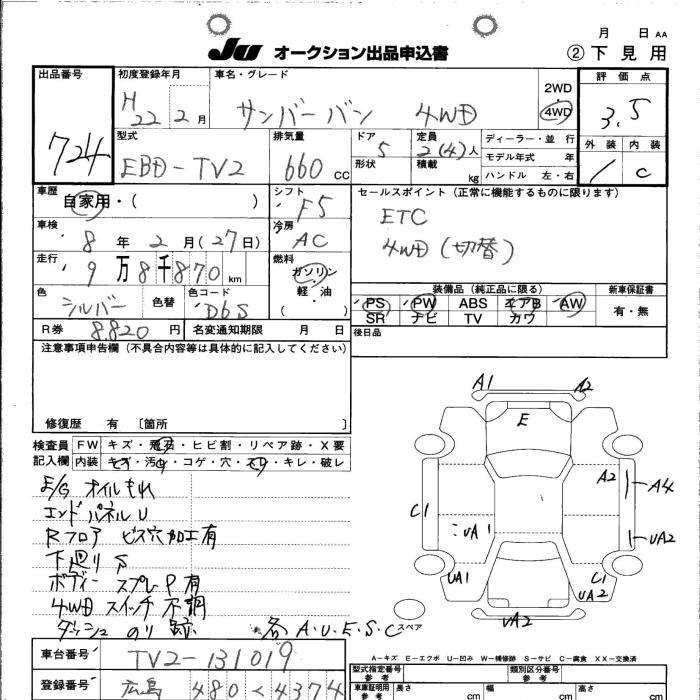 JU オークション出品申込書
月 日 AA
② 下見用
出品番号
724
初度登録年月
H 22 2 月
車名・グレード
サンバーバン 4WD
2WD
4WD
評価点
3.5
外装 内装
/ C
型式
EBD-TV2
排気量
660 CC
ドア
5
形状
定員
2(4)人
積載
kg
ディーラー・並行
モデル年式 年
ハンドル 左・右
車歴
自家用・( )
シフト
F5
セールスポイント(正常に機能するものに限ります)
ETC
4WD(切替)
車検
8 年 2 月(27日)
冷房
AC
走行
9 万 8 千 870 km
燃料
ガソリン
軽・油
( )
色
シルバー
色替
色コード
D6S
装備品(純正品に限る)
PS PW ABS エアB AW
SR ナビ TV カワ
新車保証書
有・無
R券
8.820 円
名変通知期限 月 日
後日品
注意事項申告欄(不具合内容等は具体的に記入してください)
修復歴 有 〔箇所 〕
検査員
記入欄
FW キズ・飛石・ヒビ割・リペア跡・X要
内装 キズ・汚れ・コゲ・穴・スリ・キレ・破レ
E/G オイルもれ
エンドパネルU
Rフロア ビス穴加工有
下廻りS
ボディー スプレP有
4WDスイッチ不調
ダッシュ のり跡
各A.U.E.S.C
A1 A2
E
A2 A4
C1
UA1
UA2
UA1
C1
UA2
UA2
スペア
A-キズ E-エクボ U-凹み W-補修跡 S-サビ C-腐食 XX-交換済
車台番号
TV2-131019
型式指定番号
類別区分番号
登録番号
広島 480 く 4374
車庫証明用
参考
長さ
cm
幅
cm
高さ
cm